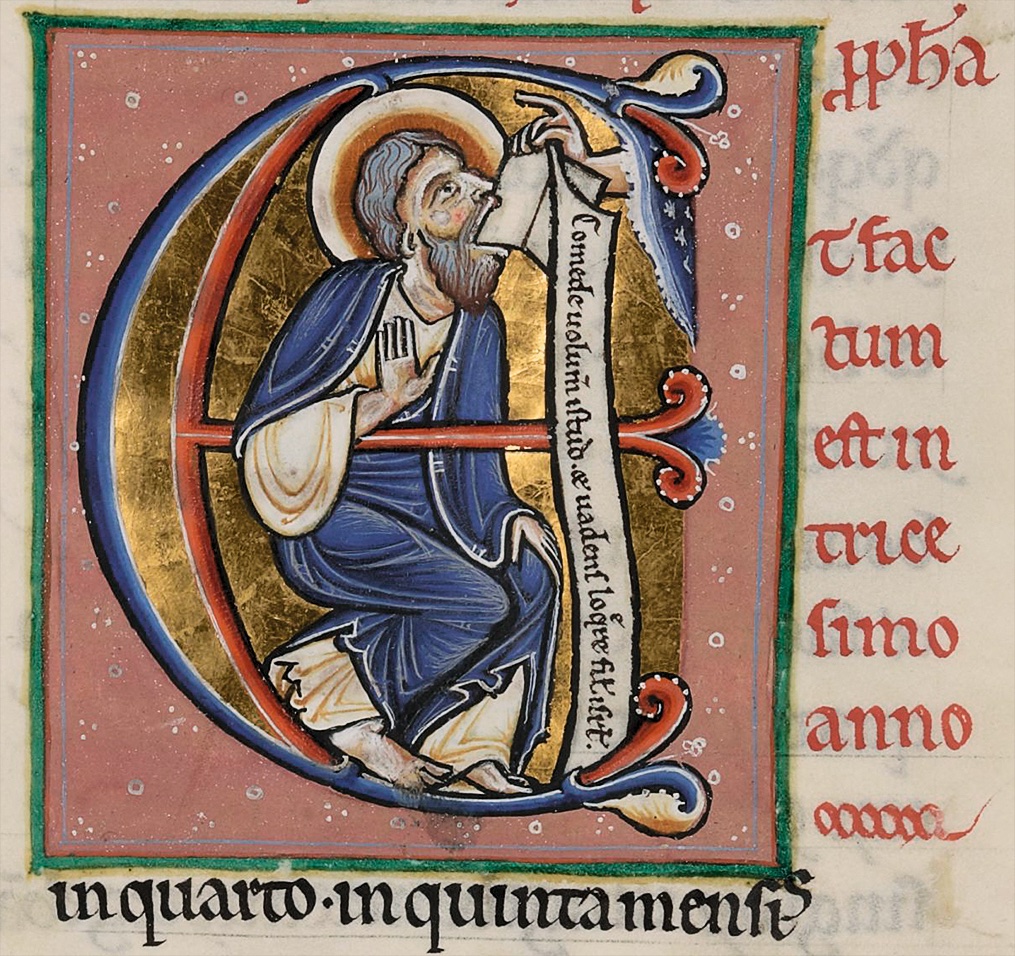 ꝓph̄a
Comede uolum̄ istud. ⁊ uadens loq̄re fil. isrl.
t fac
tum
est in
trice
simo
anno
in quarto · in quinta mensis